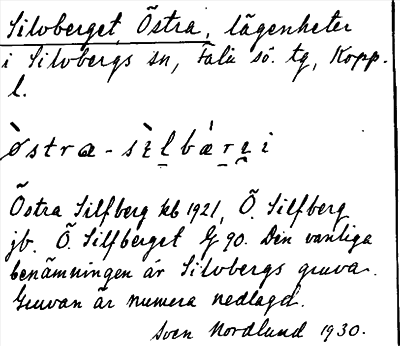 Silvberget, Östra, lägenheter
i Silvbergs sn, Falu sö. tg, Kopp.
l.
òstra-sìlbárgi
Östra Silfberg kb 1921, Ö. Silfberg
jb. Ö. Silfberget G 90. Den vanliga
benämningen är Silvbergs gruva.
Gruvan är numera nedlagd.
Sven Nordlund 1930.